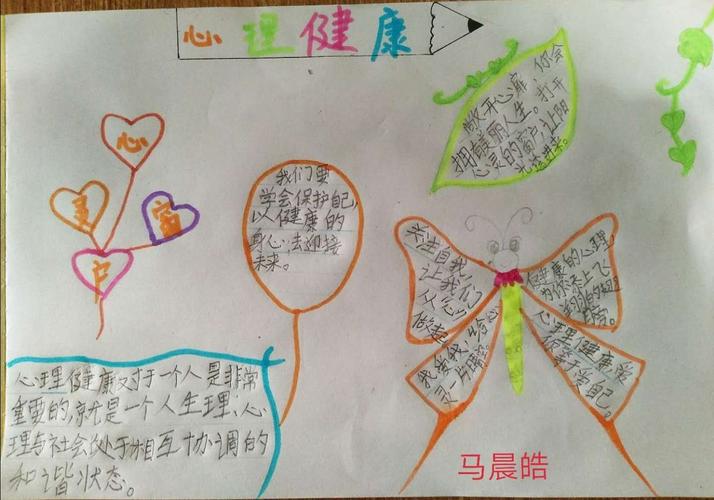 心理健康
心
灵
窗
户
我们要
学会保护自己,
以健康的
身心,去迎接
未来。
敞开心扉,你会
拥有美丽人生。打开
心灵的窗户,让阳
光透进来。
关注自我,
让我们
从心
做起。
健康的心理
为你添上飞
翔的翅
膀。
我爱我,给心
灵一片
心理健康,爱
从善于爱自己。
心理健康对于一个人是非常
重要的,就是一个人生理、心
理与社会处于相互协调的
和谐状态。
马晨皓